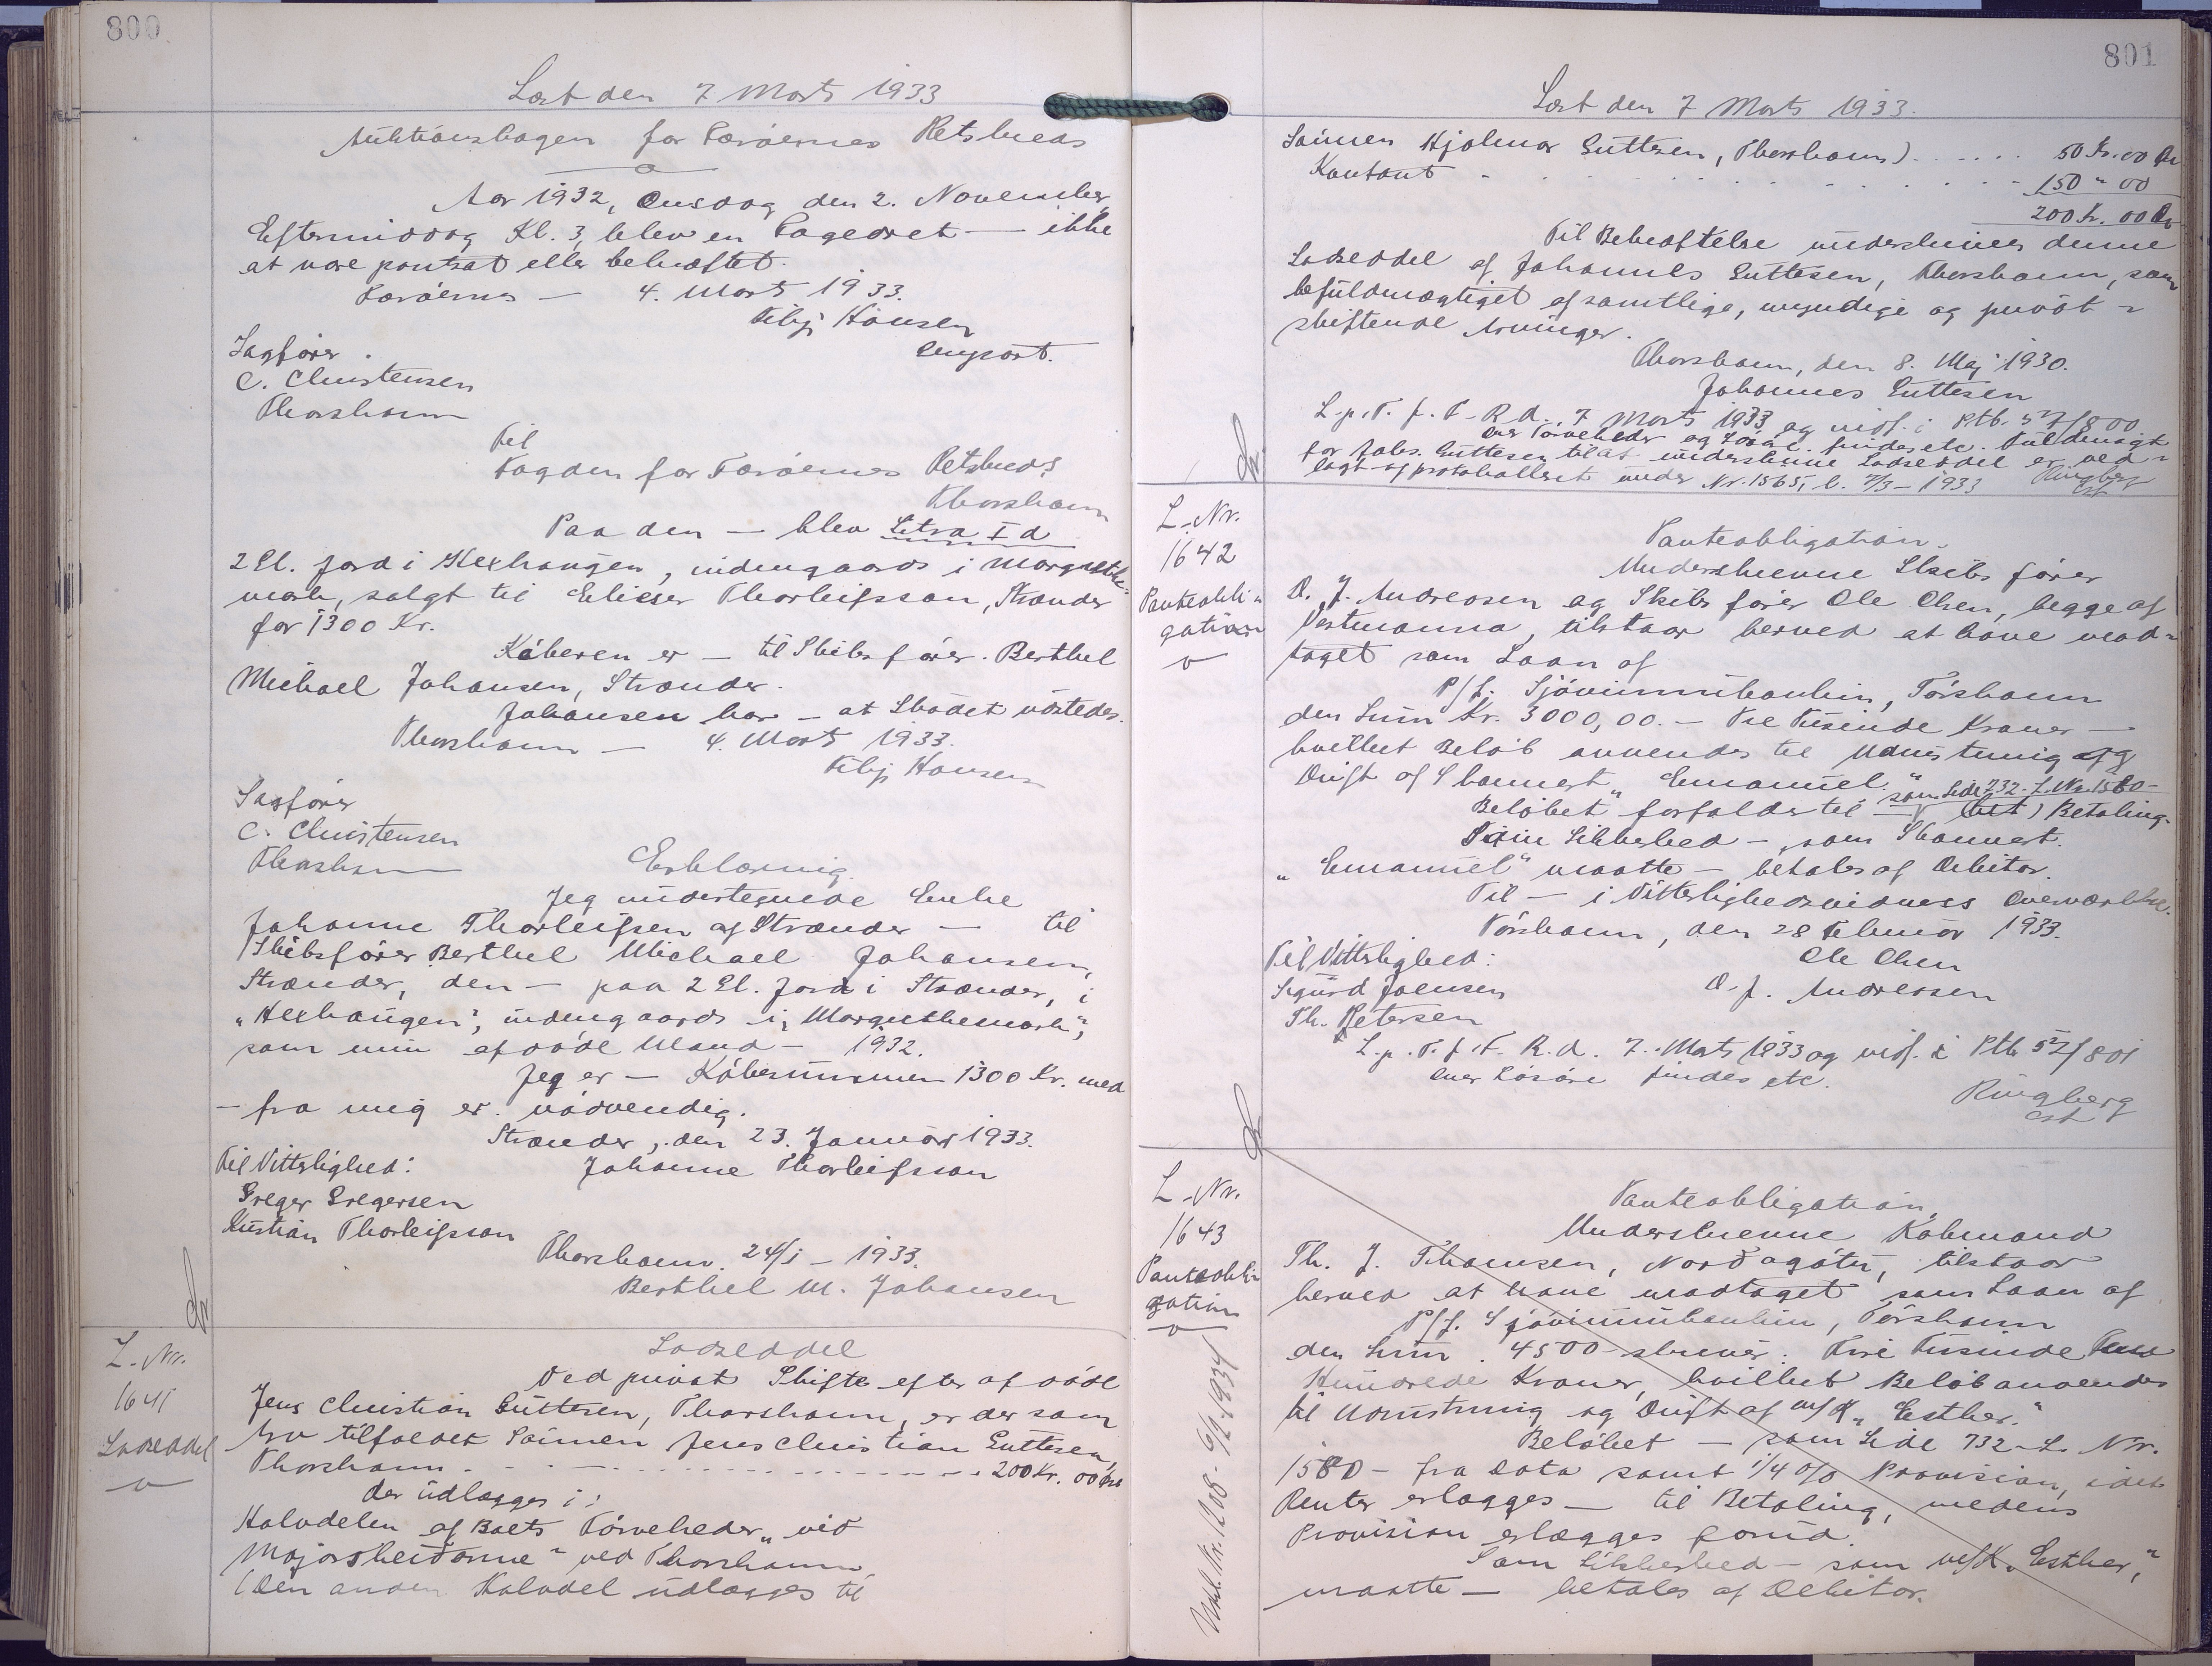 800
Læst den 7 Marts 1933
Auktionsbogen for Færøernes Retskreds
Aar 1932, Onsdag den 2. November,
Eftermiddag Kl. 3, blev en Fogedret — ikke
at være pantsat eller behæftet.
Færøernes — 4. Marts 1933.
Hansen
Sagfører
C. Christensen
Thorshavn
Til
Fogden for Færøernes Retskreds
Thorshavn
Paa den — blev Litra I d
2 Gl. Jord i Hexhaugen, indengaards i Margrethe-
mark, solgt til Elieser Thorleifsson, Strænder
for 1300 Kr.
Køberen er — til Skibsfører Berthel
Michael Johansen, Strænder.
Johansen har — at Skødet udstedes.
Thorshavn — 4. Marts 1933.
Hansen
Sagfører
C. Christensen
Thorshavn
Erklæring.
Jeg undertegnede Enke
Johanne Thorleifsen af Strænder — til
Skibsfører Berthel Michael Johansen,
Strænder, den — paa 2 Gl. Jord i Strænder, i
"Hexhaugen", indengaards i "Margrethemark",
som min afdøde Mand — 1932.
Jeg er — Købesummen 1300 Kr. med
— fra mig er nødvendig.
Strænder, den 23. Januar 1933.
Til Vitterlighed: Johanne Thorleifsson
Greger Gregersen
Kristian Thorleifsson
Thorshavn 24/1 - 1933.
Berthel M. Johansen
L-Nr.
1641
Lodseddel
Lodseddel
Ved privat Skifte efter afdøde
Jens Christian Guttesen, Thorshavn, er der som
Arv tilfaldet Sønnen Jens Christian Guttesen,
Thorshavn . . . 200 Kr. 00 Øre
der udlægges i:
Halvdelen af Baets Tørveheder "við
Majorsheiðanne" ved Thorshavn
(Den anden Halvdel udlægges til
801
Læst den 7 Marts 1933.
Sønnen Hjalmar Guttesen, Thorshavn) . . . . . 50 Kr. 00 Øre
Kontant . . . 150 " 00
200 Kr. 00 Øre
Til Bekræftelse underskrives denne
Lodseddel af Johannes Guttesen, Thorshavn, som
befuldmægtiget af samtlige, myndige og privat-
skiftende Arvinger.
Thorshavn, den 8. Maj 1930.
Johannes Guttesen
L.p.T. f. F. R. d. 7 Marts 1933 og indf. i Ptb. 57/800
Over Tørveheder og Løsøre findes etc. Fuldmagt
for Johs. Guttesen til at underskrive Lodseddel er ved-
lagt og protokolleret under Nr. 1565, l. 7/3 - 1933 Ringberg
cst
L-Nr.
1642
Panteobli-
gation
Panteobligation.
Underskrevne Skibsfører
D. J. Andreasen og Skibsfører Ole Olsen, begge af
Vestmanna, tilstaar herved at have mod-
taget som Laan af
P/f. Sjóvinnubankin, Tórshavn
den Sum Kr. 3000,00. — Tre Tusinde Kroner —
hvilket Beløb anvendes til Udrustning og
Drift af Skonnert "Emanuel."
Beløbet forfalder til — (som Side 732 - L. Nr. 1580 - ) Betaling.
Som Sikkerhed — som Skonnert.
"Emanuel" maatte — betales af Debitor.
Til — i Vitterlighedsvidners Overværelse.
Tórshavn, den 28 Februar 1933.
Til Vitterlighed: Ole Olsen
Sigurd Joensen D. J. Andreasen
Th. Petersen
L.p.T. f. F. R. d. 7. Marts 1933 og indf. i Ptb 57/801
Over Løsøre findes etc.
Ringberg
cst
L-Nr.
1643
Panteobli-
gation
Panteobligation
Underskrevne Købmand
Th. J. Thomsen, Norðagøtu, tilstaar
herved at have modtaget som Laan af
P/f. Sjóvinnubankin, Tórshavn
den Sum . 4500 skriver: Fire Tusinde Fem
Hundrede Kroner, hvilket Beløb anvendes
til Udrustning og Drift af m/K "Esther."
Beløbet — som Side 732 - L. Nr.
1580 - fra Dato samt 1/4 o/o Provision, idet
Renter erlægges — til Betaling, medens
Provision erlægges forud.
Som Sikkerhed — som m/K. "Esther,"
maatte — betales af Debitor.